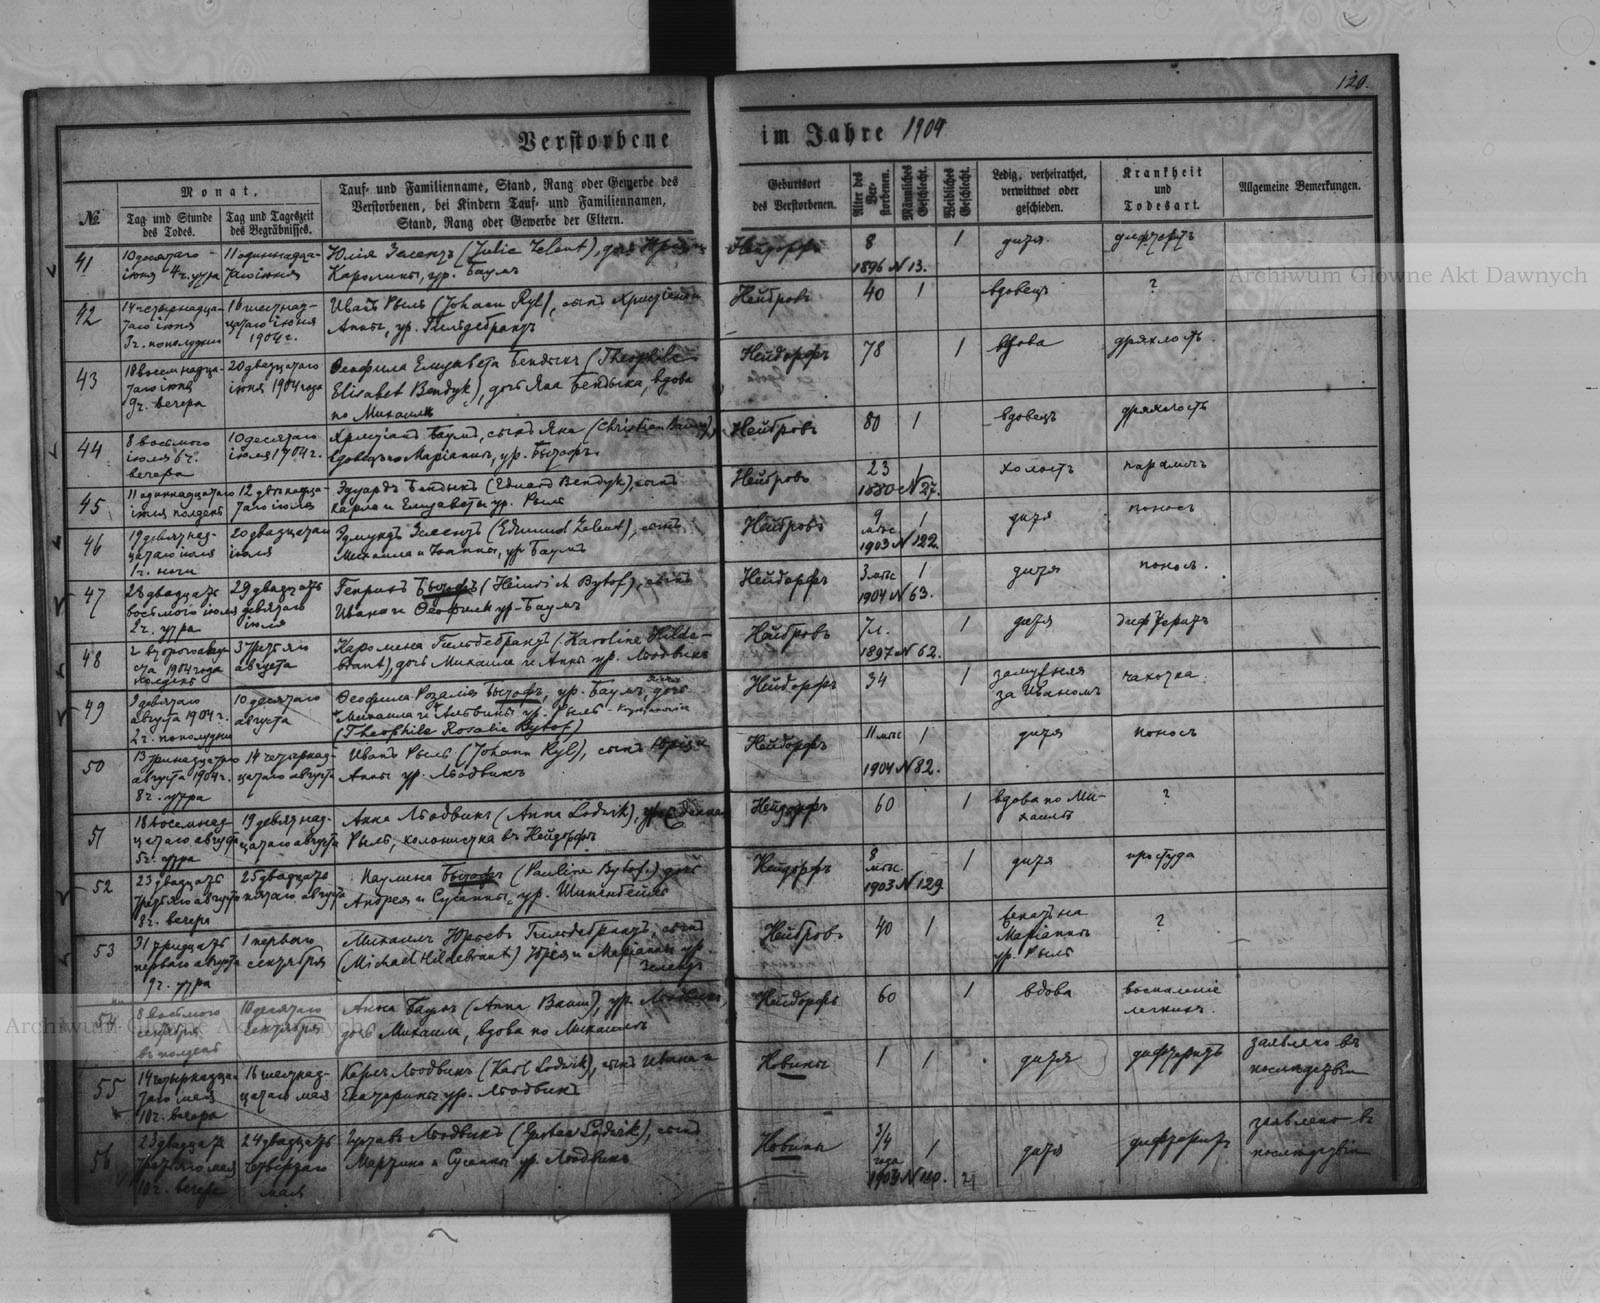 120.
Verstorbene im Jahre 1904
№
Monat.
Tag und Stunde des Todes.
Tag und Tageszeit des Begräbnisses.
Tauf- und Familienname, Stand, Rang oder Gewerbe des
Verstorbenen, bei Kindern Tauf- und Familiennamen,
Stand, Rang oder Gewerbe der Eltern.
Geburtsort
des Verstorbenen.
Alter des Ver-
storbenen.
Männliches Geschlecht.
Weibliches Geschlecht.
Ledig, verheirathet,
verwittwet oder
geschieden.
Krankheit
und
Todesart.
Allgemeine Bemerkungen.
41
10 десятаго
июня 4 ч. утра
11 одиннадца-
таго июня
Юлія Зелентъ (Julie Zelent), дочь
Каролины, ур. Баумъ
Нейдорфъ
8
1896 N 13.
1
дитя
дифтеритъ
42
14 четырнадца-
таго июня
3 ч. пополудни
16 шестнад-
цатаго июня
1904 г.
Иванъ Рыль (Johann Ryl), сынъ
Анны, ур. Гильдебрандтъ
Нейбровъ
40
1
вдовецъ
?
43
18 восемнадца-
таго июня
9 ч. вечера
20 двадцатаго
июня 1904 года
Феофила Елизавета Бендыкъ (Theophile
Elisabet Bendyk), дочь Яна Бендыка, вдова
по Михаилѣ
Нейдорфъ
78
1
вдова
дряхлость
44
8 восьмого
июля 6 ч.
вечера
10 десятаго
июля 1904 г.
Христіанъ Баумъ, сынъ Яна (Christian Baum),
вдовецъ по Маріаннѣ, ур. Бытофъ
Нейбровъ
80
1
вдовецъ
дряхлость
45
11 одиннадцатаго
июля полдень
12 двѣнадца-
таго июля
Эдуардъ Бендыкъ (Eduard Bendyk), сынъ
Карла и Елизаветы ур. Рыль
Нейбровъ
23
1880 N 27.
1
холостъ
параличъ
46
19 девятнад-
цатаго июля
1 ч. ночи
20 двадцатаго
июля
Эдмундъ Зелентъ (Edmund Zelent), сынъ
Михаила и Іоанны, ур. Баумъ
Нейбровъ
9
мѣс.
1903 N 122.
1
дитя
поносъ
47
28 двадцать
восьмого июля
2 ч. утра
29 двадцать
девятаго
июля
Генрихъ Бытофъ (Heinrich Bytof), сынъ
Ивана и Феофили ур. Баумъ
Нейдорфъ
3 мѣс
1904 N 63.
1
дитя
поносъ.
48
2 второго авгу-
ста 1904 года
полдень
3 третьяго
августа
Каролина Гильдебрандтъ (Karoline Hilde-
brant), дочь Михаила и Анны ур. Людвикъ
Нейбровъ
7 л.
1897 N 62.
1
дитя
дифтеритъ
49
9 девятаго
августа 1904 г.
2 ч. пополудни
10 десятаго
августа
Феофила Розалія Бытофъ, ур. Баумъ, дочь
Михаила и Альвины ур. Рыль
(Theophile Rosalie Bytof)
Нейдорфъ
34
1
замужняя
за Иваномъ
чахотка
50
13 тринадцатаго
августа 1904 г.
8 ч. утра
14 четырнад-
цатаго августа
Иванъ Рыль (Johann Ryl), сынъ
Анны ур. Людвикъ
Нейдорфъ
11 мѣс
1904 N 82.
1
дитя
поносъ
51
18 восемнад-
цатаго августа
5 ч. утра
19 девятнад-
цатаго августа
Анна Людвикъ (Anna Lodwik), урожденная
Рыль, колонистка въ Нейдорфѣ
Нейдорфъ
60
1
вдова по Ми-
хаилѣ
?
52
23 двадцать
третьяго августа
8 ч. вечера
25 двадцать
пятаго августа
Паулина Бытофъ (Pauline Bytof), дочь
Андрея и Сусанны, ур.
Нейдорфъ
8
мѣс.
1903 N 129.
1
дитя
простуда
53
31 тридцать
перваго августа
9 ч. утра
1 перваго
сентября
Михаилъ Юрьевъ Гильдебрандтъ, сынъ
(Michael Hildebrant) Юрія и Маріанны ур.
Зелентъ
Нейбровъ
40
1
женатъ на
Маріаннѣ
ур. Рыль
?
54
8 восьмого
сентября
въ полдень
10 десятаго
сентября
Анна Баумъ (Anna Baum), ур. Людвикъ,
дочь Михаила, вдова по Михаилѣ
Нейдорфъ
60
1
вдова
воспаленіе
легкихъ.
55
14 четырнадца-
таго мая
10 ч. вечера
16 шестнад-
цатаго мая
Карлъ Людвикъ (Karl Lodwik), сынъ Ивана и
Екатерины ур. Людвикъ
Новины
1
1
дитя
дифтеритъ
заявлено въ
послѣдствіи
56
23 двадцать
третьяго мая
10 ч. вечера
24 двадцать
четвертаго
мая
Густавъ Людвикъ (Gustav Lodwik), сынъ
Мартина и Сусанны ур. Людвикъ
Новины
3/4
года
1
дитя
дифтеритъ
заявлено въ
послѣдствіи
Archiwum Główne Akt Dawnych
Archiwum Główne Akt Dawnych